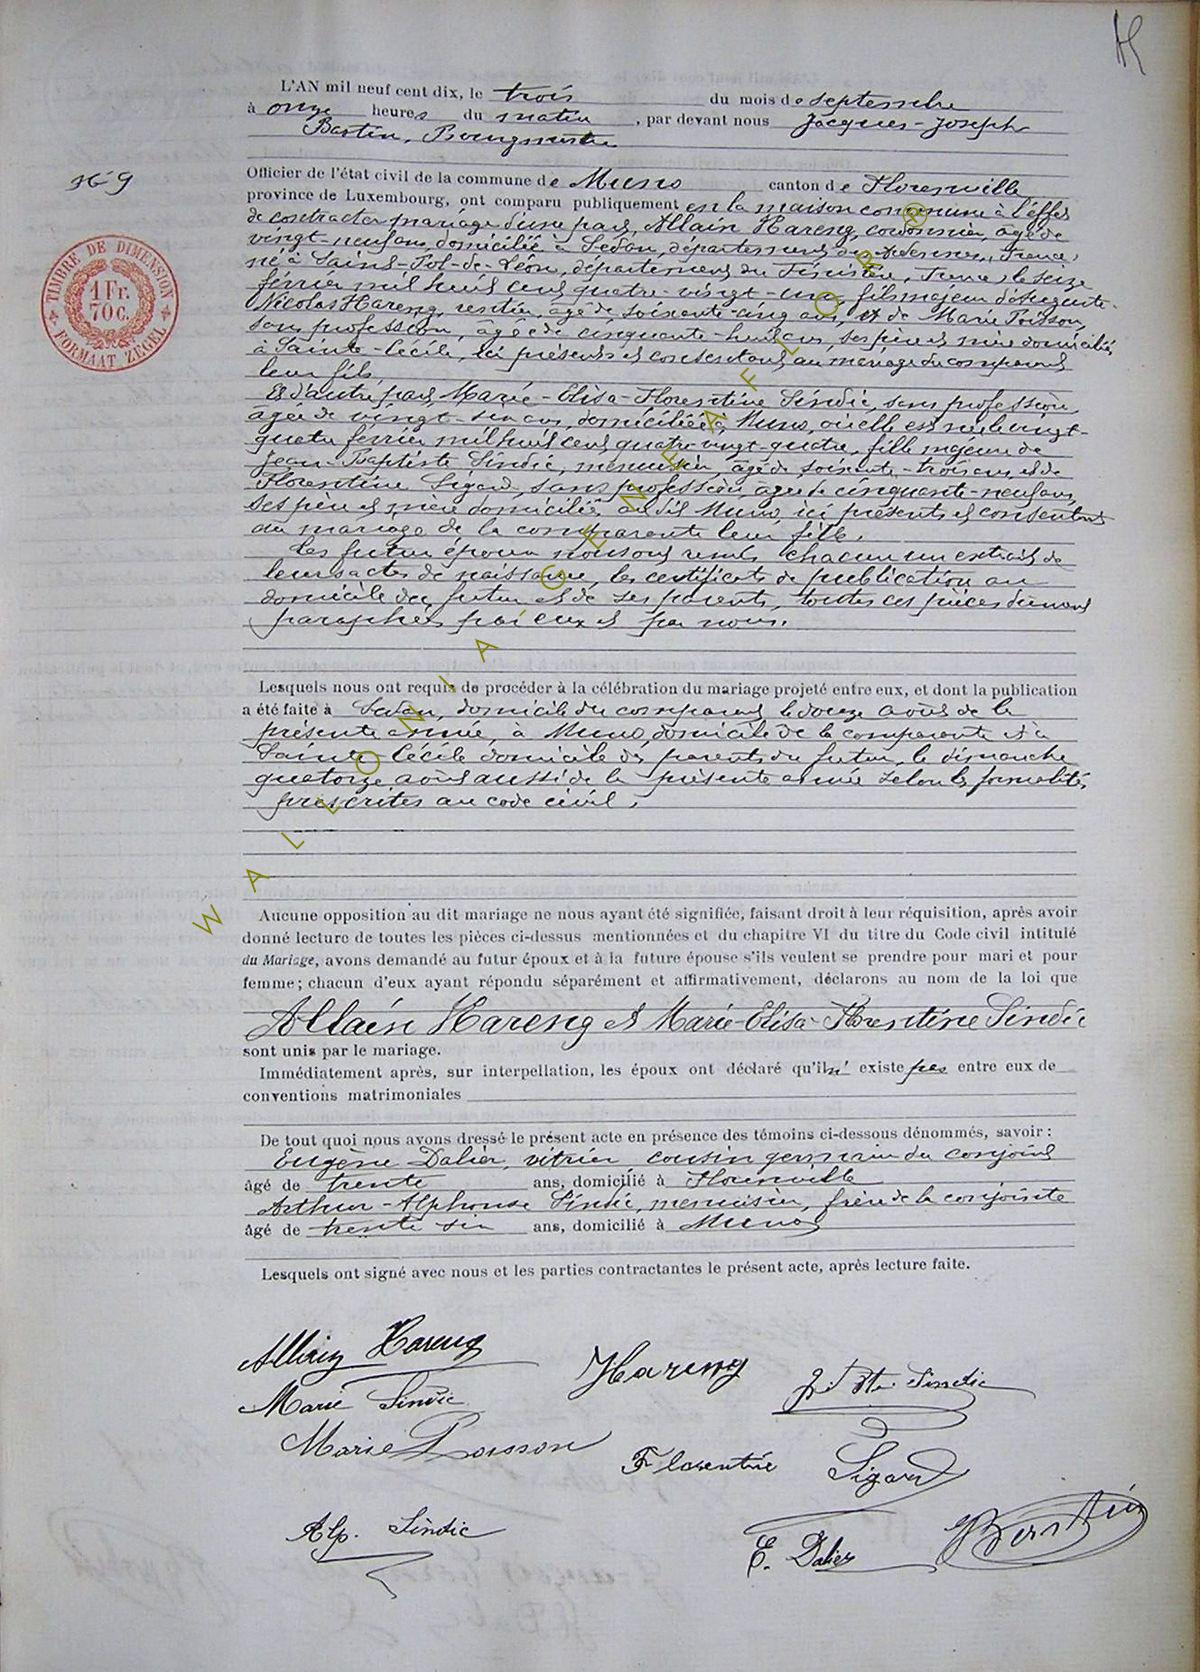 L'AN mil neuf cent dix, le trois du mois de septembre
à onze heures du matin, par devant nous Jacques-Joseph
Bastin, Bourgmestre
N° 9
TIMBRE DE DIMENSION
1 Fr.
70 C.
FORMAAT ZEGEL
Officier de l'état civil de la commune de Muno canton de Florenville
province de Luxembourg, ont comparu publiquement en la maison commune à l'effet
de contracter mariage d'une part, Allain Hareng, cordonnier, âgé de
vingt-neuf ans, domicilié à Sedan, département des Ardennes, France,
né à Saint-Pol-de-Léon, département du Finistère, France, le seize
février mil huit cent quatre-vingt-un, fils majeur d'Auguste-
Nicolas Hareng, rentier, âgé de soixante-cinq ans, et de Marie Poisson,
sans profession, âgée de cinquante-huit ans, ses père et mère domiciliés
à Sainte-Cécile, ici présents et consentant au mariage du comparant
leur fils.
Et d'autre part, Marie-Elisa-Florentine Sindic, sans profession,
âgée de vingt-six ans, domiciliée à Muno, où elle est née le vingt-
quatre février mil huit cent quatre-vingt-quatre, fille majeure de
Jean-Baptiste Sindic, menuisier, âgé de soixante-trois ans, et de
Florentine Sigard, sans profession, âgée de cinquante-neuf ans,
ses père et mère domiciliés au dit Muno, ici présents et consentant
au mariage de la comparante leur fille.
Les futurs époux nous ont remis chacun un extrait de
leurs actes de naissance, les certificats de publication au
domicile du futur et de ses parents, toutes ces pièces dûment
paraphées par eux et par nous.
Lesquels nous ont requis de procéder à la célébration du mariage projeté entre eux, et dont la publication
a été faite à Sedan, domicile du comparant le douze août de la
présente année, à Muno, domicile de la comparante et à
Sainte Cécile domicile des parents du futur, le dimanche
quatorze août aussi de la présente année selon les formalités
prescrites au code civil.
Aucune opposition au dit mariage ne nous ayant été signifiée, faisant droit à leur réquisition, après avoir
donné lecture de toutes les pièces ci-dessus mentionnées et du chapitre VI du titre du Code civil intitulé
du Mariage, avons demandé au futur époux et à la future épouse s'ils veulent se prendre pour mari et pour
femme; chacun d'eux ayant répondu séparément et affirmativement, déclarons au nom de la loi que
Allain Hareng et Marie-Elisa-Florentine Sindic
sont unis par le mariage.
Immédiatement après, sur interpellation, les époux ont déclaré qu'il n' existe pas entre eux de
conventions matrimoniales
De tout quoi nous avons dressé le présent acte en présence des témoins ci-dessous dénommés, savoir :
Eugène Dalier, vitrier cousin germain du conjoint
âgé de trente ans, domicilié à Florenville
Arthur-Alphonse Sindic, menuisier, frère de la conjointe
âgé de trente six ans, domicilié à Muno
Lesquels ont signé avec nous et les parties contractantes le présent acte, après lecture faite.
Allain Hareng
Hareng
Marie Sindic
J. Bte. Sindic
Marie Poisson
Florentine Sigard
Alp. Sindic
E. Dalier
Bastin
WALLONIA GENEAFLOR®